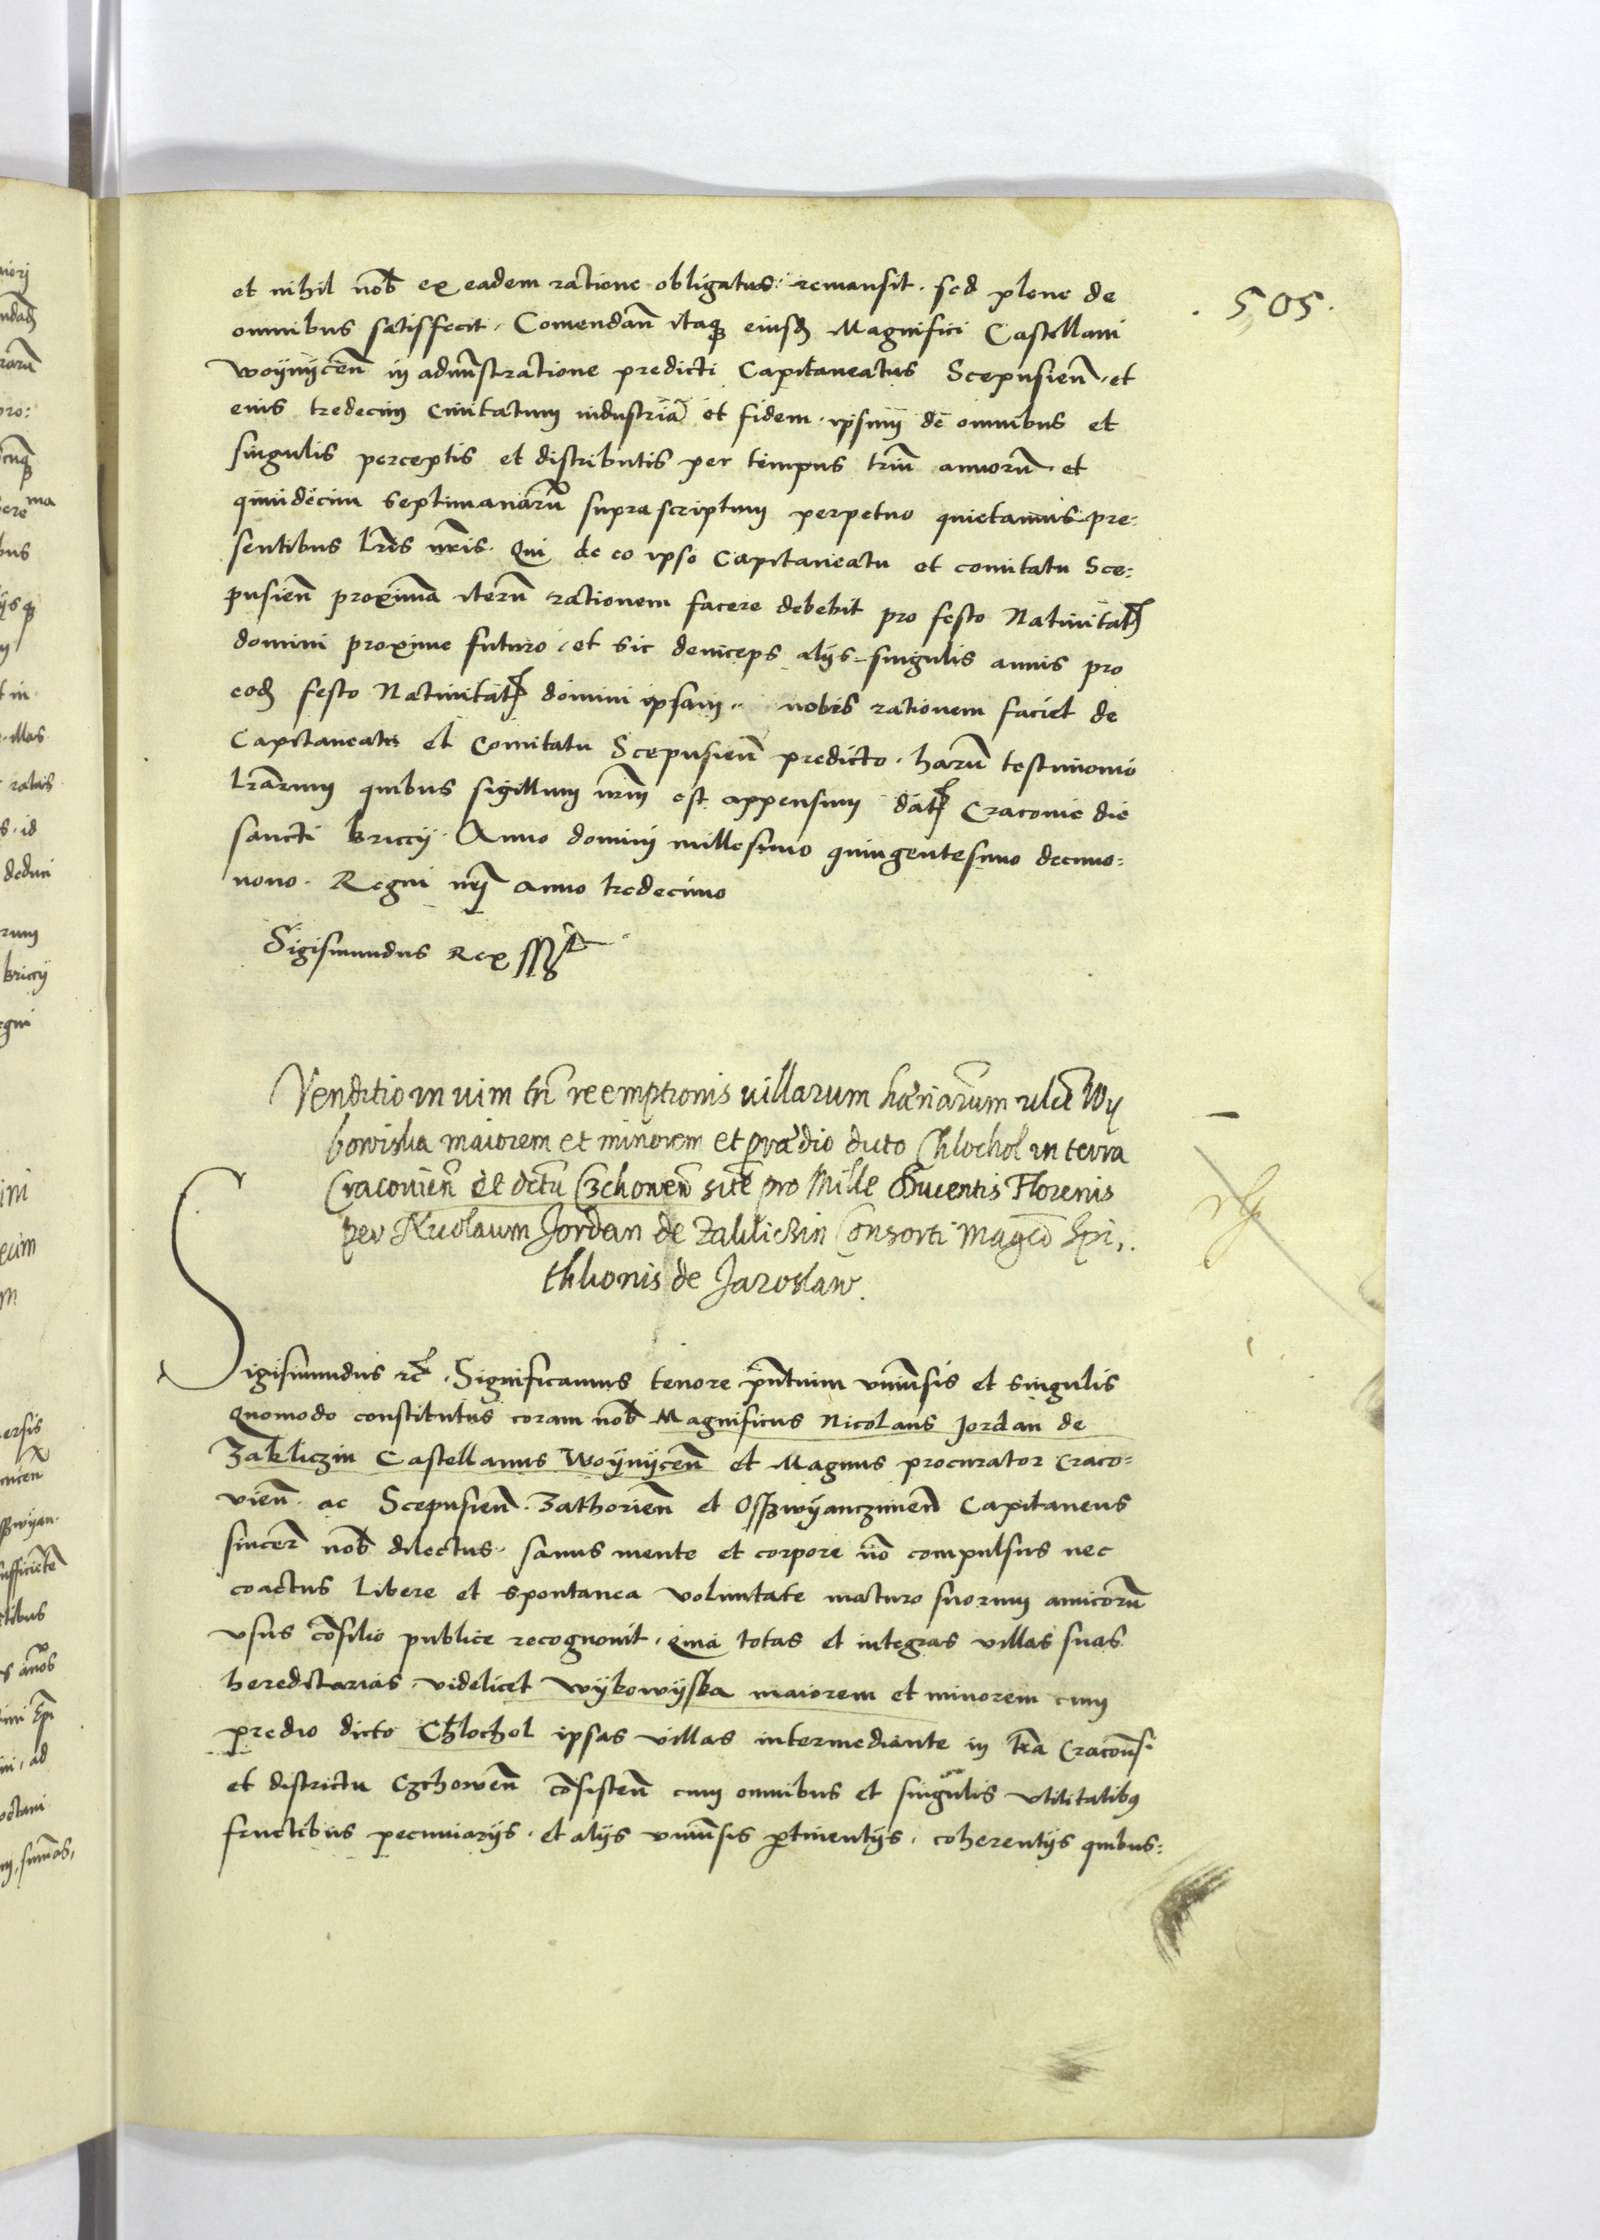 et nihil nob ex eadem ratione obligatus remansit. sed plene de
. 505.
omnibus satisfecit. Comendan itaq eiusd Magnifici Castellani
woynycen in admnstratione predicti Capitaneatus Scepusien. et
eius tredecim Civitatum industria et fidem. ipsum de omnibus et
singulis perceptis et distributis per tempus triu annoru. et
quindecim septimanaru suprascriptum perpetuo quietamus pre:
sentibus lris nris. Qui de eo ipso Capitaneatu et comitatu Sce:
pusien proxima iteru rationem facere debebit pro festo Nativitat
domini proxime futuro. et sic deinceps alys singulis annis pro
eod festo Nativitat domini ipsam nobis rationem faciet de
Capitaneatu et Comitatu Scepusien predicto. haru testimonio
lrarum quibus sigillum nrm est appensum dat Cracovie die
sancti briccy. Anno domini millesimo quingentesimo decimo:
nono. Regni nri anno tredecimo
Sigismundus Rex sst
Venditio in vim tn reemptionis villarum hœriarum vlct Wy
bowiska maiorem et minorem et prædio dicto Chlochol in terra
Cracovien et dctu Czchowen site pro Mille Ducentis Florenis
per Nicolaum Jordan de Zaklickin Consorti Magci Spi,.
thkonis de Jaroslaw.
Sigismundus rc. Significamus tenore pntuim vniusis et singulis
quomodo constitutus coram nob Magnificus Nicolaus Jordan de
Zakliczin Castellanus Woynycen et Magnus procurator Craco:
vien. ac Scepusien. Zathorien et Osszwyanczimen Capitaneus
sincer nob dilectus. sanus mente et corpore no compulsus nec
coactus libere et spontanea voluntate maturo suorum amicoru
vsus cosilio publice recognovit. Quia totas et integras villas suas
hereditarias videlicet wybowyska maiorem et minorem cum
predio dicto Chlochol ipsas villas intermediante in tra Craconsi
et districtu Czchowen cosisten cum omnibus et singulis vtilitatibus
fructibus pecuniarys. et alys vniusis ptinentys. coherentys quibus: